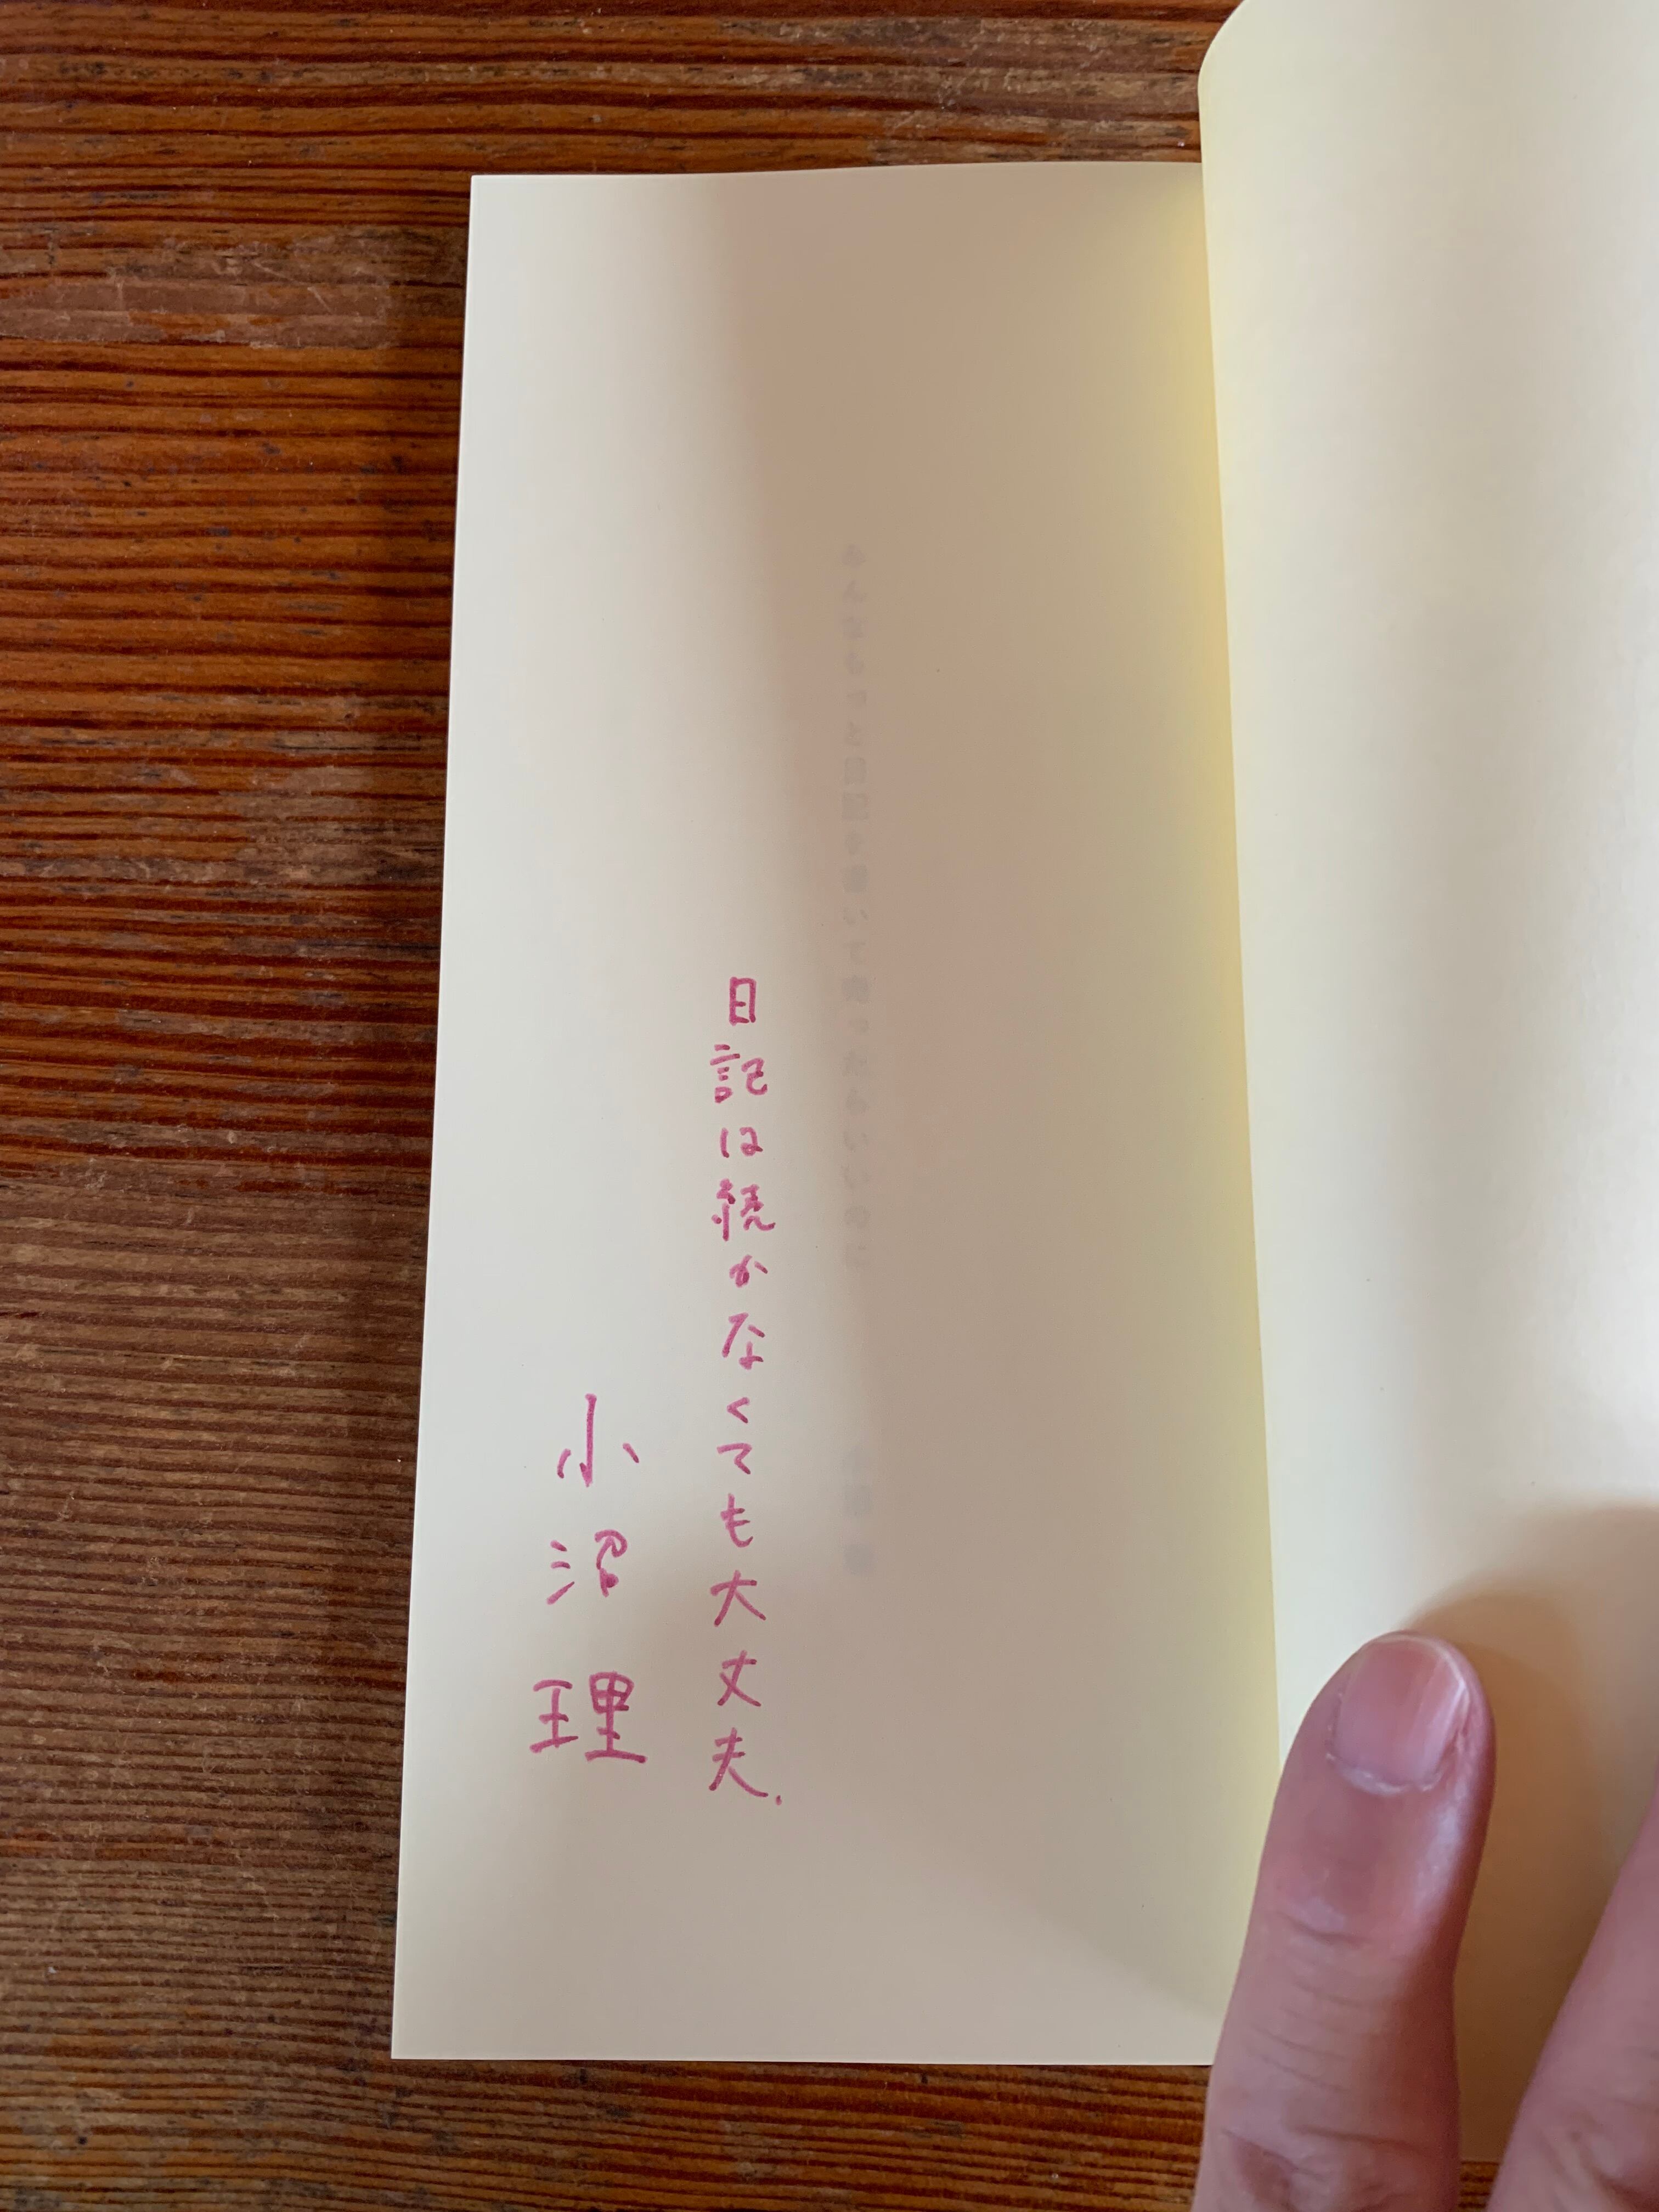 日記は続かなくても大丈夫.
小沼理